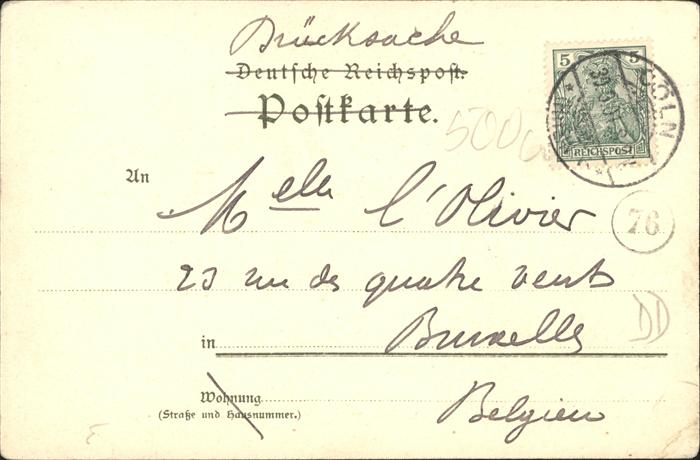 Drücksache
Deutsche Reichspost.
Postkarte.
5 5
REICHSPOST
CÖLN
5006
An Melle l'Olivier
76
23 rue des quatre vents
DD
in Bruxelles
Wohnung
(Straße und Hausnummer.)
Belgien